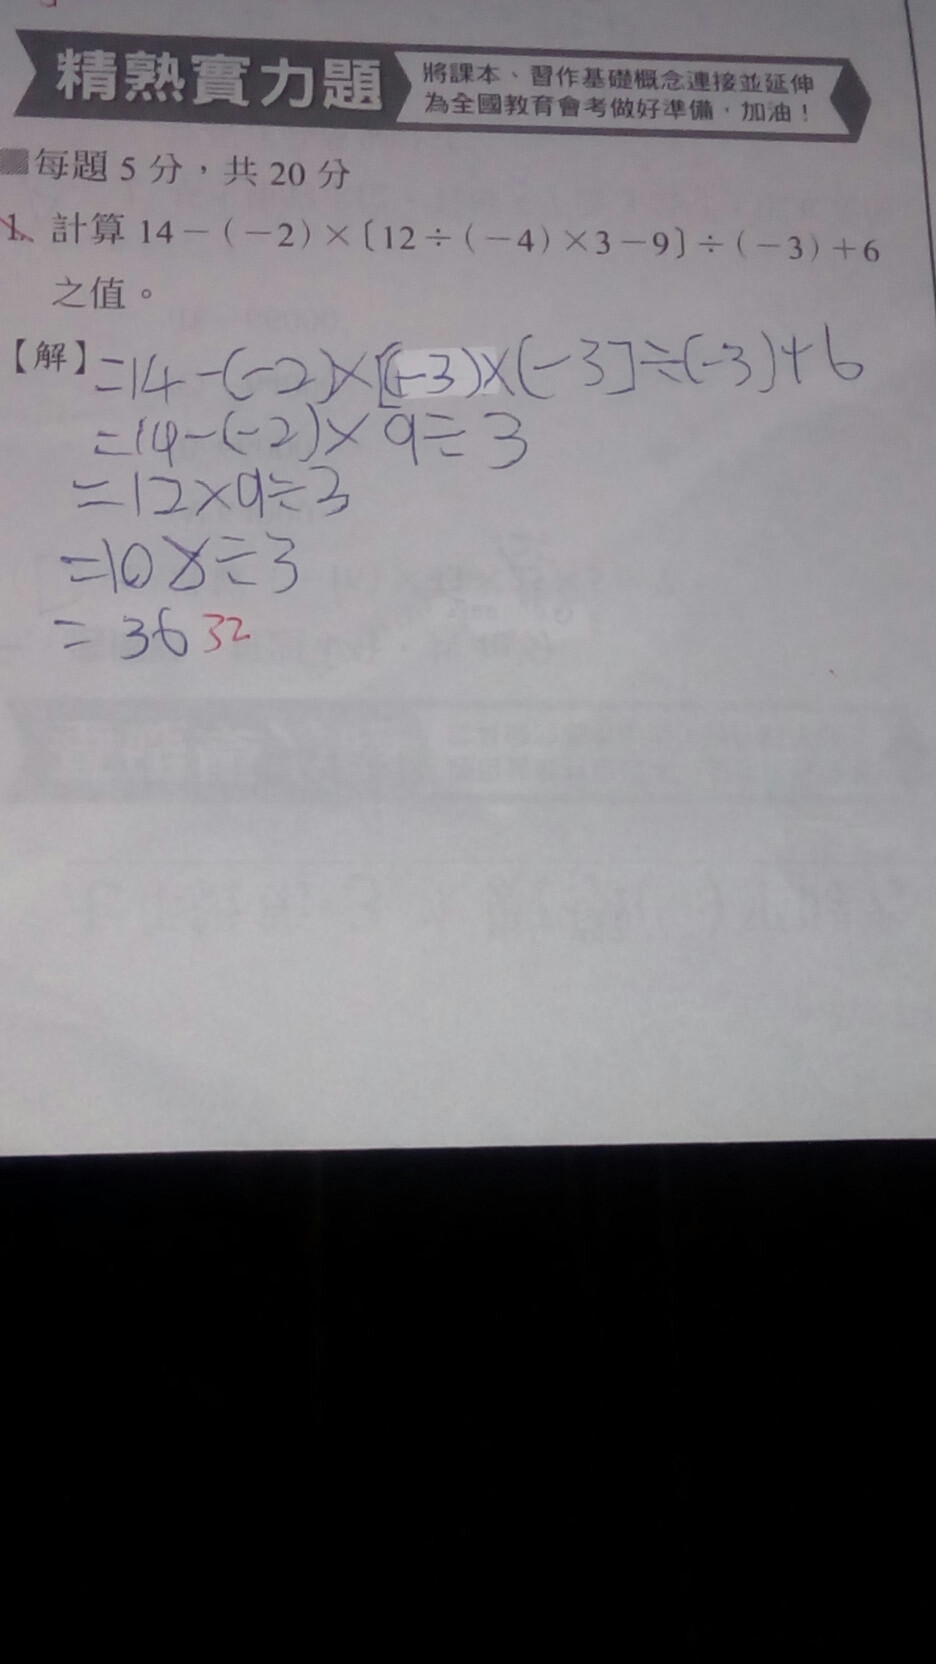 精熟實力題
將課本、習作基礎概念連接並延伸
為全國教育會考做好準備，加油！
每題 5 分，共 20 分
1. 計算 14－(－2)×〔12÷(－4)×3－9〕÷(－3)＋6
之值。
【解】=14-(-2)×[(-3)×(-3]÷(-3)+6
=14-(-2)×9÷3
=12×9÷3
=108÷3
=36 32